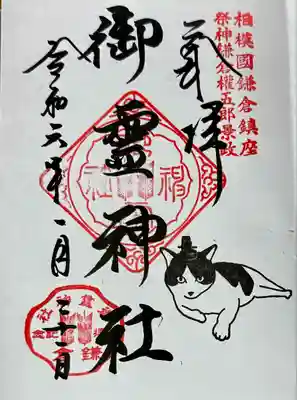 相模國鎌倉鎮座
祭神鎌倉權五郎景政
奉拝
御霊神社
令和六年一月
三十一日